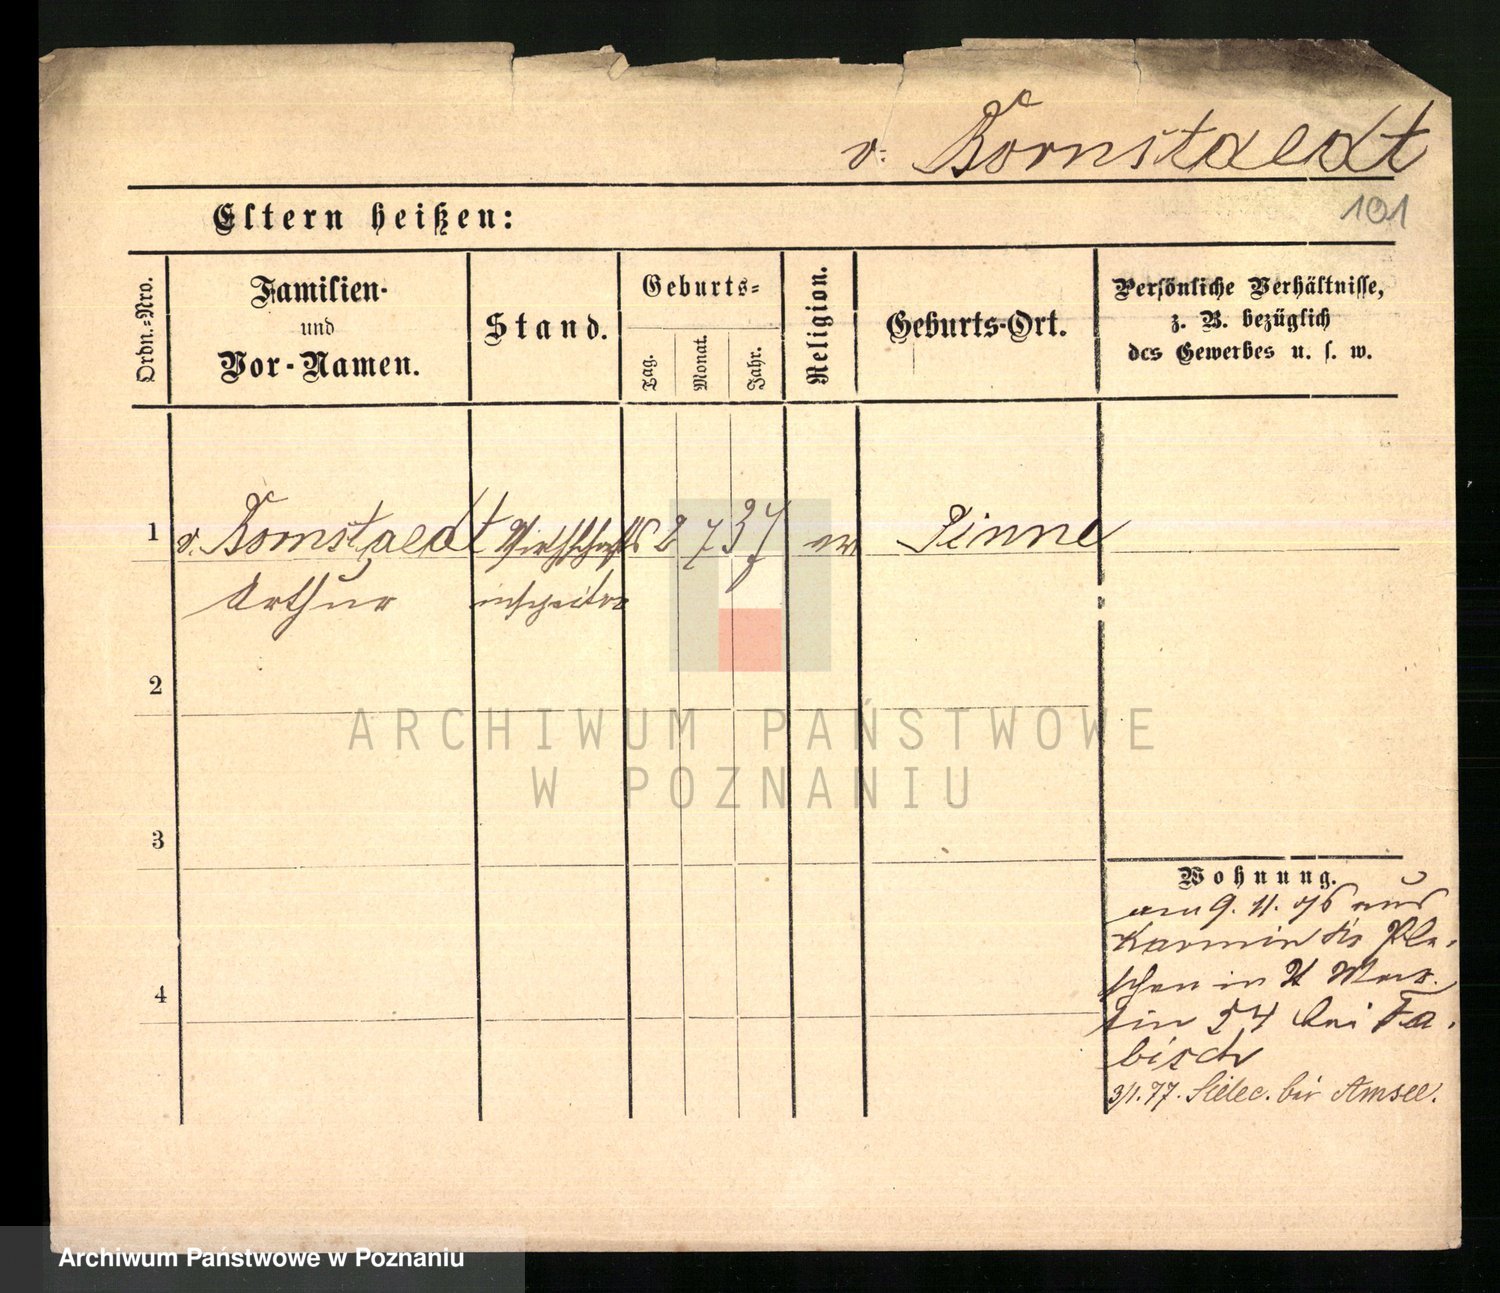 v. Bornstaedt
101
Eltern heißen:
Ordn.-Nro.
Familien-
und
Vor-Namen.
Stand.
Geburts-
Tag.
Monat.
Jahr.
Religion.
Geburts-Ort.
Persönliche Verhältnisse,
z. B. bezüglich
des Gewerbes u. s. w.
1 v. Bornstaedt Wirthschafts 2 7 37 ev Pinne
Arthur inspector
2
3
4
Wohnung.
am 9. 11. 76 aus
Karmin Krs Ple-
schen in St Mar-
tin 54 bei Fa-
bisch
3/1. 77. Sielec. bei Amsee.
ARCHIWUM PAŃSTWOWE
W POZNANIU
Archiwum Państwowe w Poznaniu